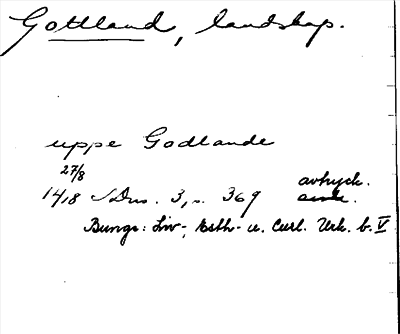 Gottland, landskap.
uppe Godlande
27/8
1418 SDns. 3, s. 369 avtryck.
Bunge: Liv-, Esth- u. Curl. Urk. b. V